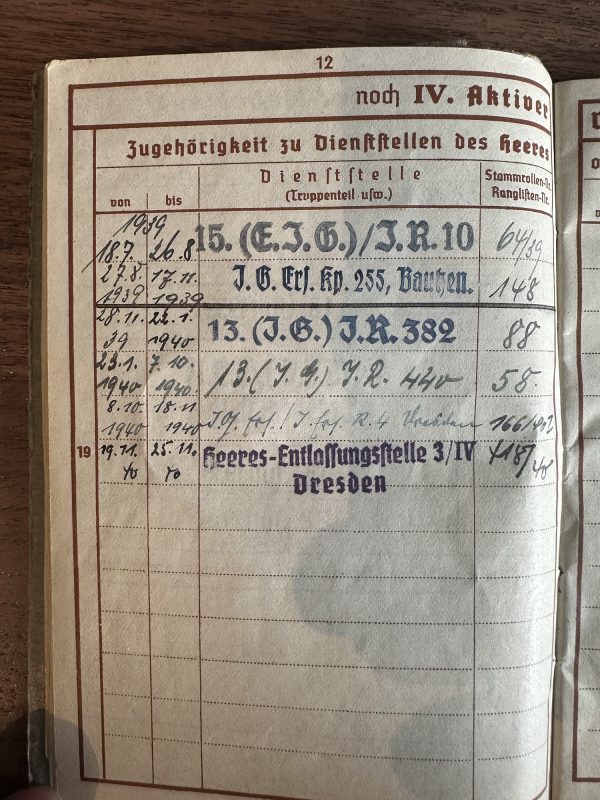 12
noch IV. Aktiver
Zugehörigkeit zu Dienststellen des Heeres
von bis Dienststelle (Truppenteil usw.) Stammrollen-Nr. Ranglisten-Nr.
1939
18.7. 26.8 15. (E.J.G.)/J.R.10 64/39
27.8. 17.11. J.G. Ers. Kp. 255, Bautzen. 148
1939 1939
28.11. 22.1. 13. (J.G.) J.R. 382 88
39 1940
23.1. 7.10. 13. (J.G.) J.R. 440 58.
1940 1940.
8.10. 18.11 J.G. Ers. / J. Ers. R. 4 Dresden
1940 1940
19 19.11. 25.11. Heeres-Entlassungsstelle 3/IV
40 40 Dresden